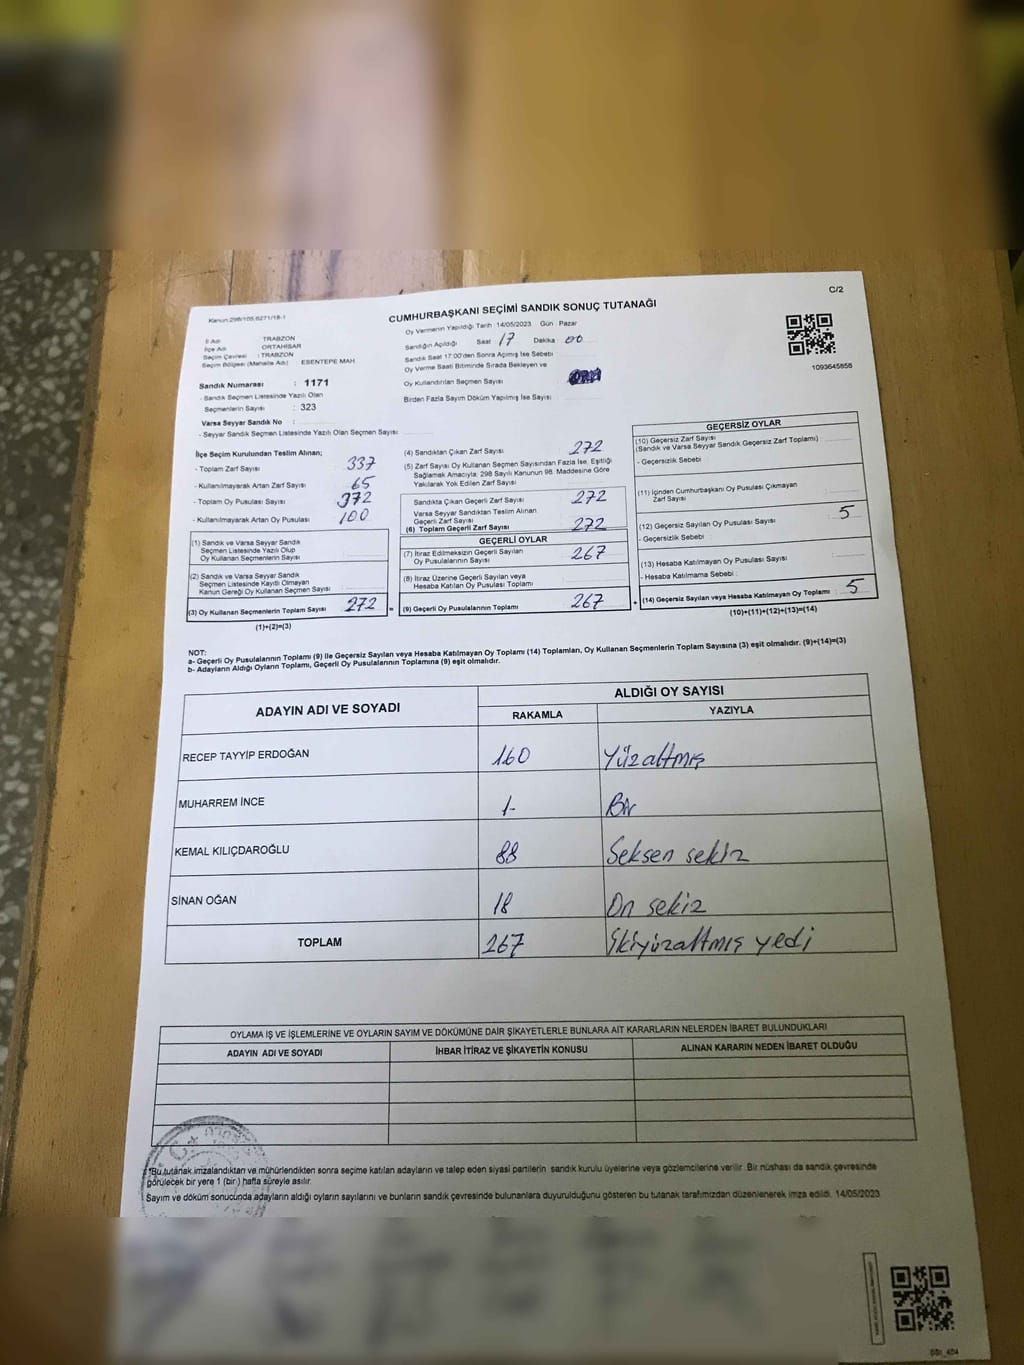 C/2
Kanun:298/105,6271/18-1
CUMHURBAŞKANI SEÇİMİ SANDIK SONUÇ TUTANAĞI
İl Adı : TRABZON
İlçe Adı : ORTAHİSAR
Seçim Çevresi : TRABZON
Seçim Bölgesi (Mahalle Adı) : ESENTEPE MAH.
Sandık Numarası : 1171
- Sandık Seçmen Listesinde Yazılı Olan
Seçmenlerin Sayısı : 323
Varsa Seyyar Sandık No :
- Seyyar Sandık Seçmen Listesinde Yazılı Olan Seçmen Sayısı
Oy Vermenin Yapıldığı Tarih :14/05/2023 Gün : Pazar
Sandığın Açıldığı Saat 17 Dakika 00
Sandık Saat 17:00'den Sonra Açılmış İse Sebebi
Oy Verme Saati Bitiminde Sırada Bekleyen ve
Oy Kullandırılan Seçmen Sayısı
Birden Fazla Sayım Döküm Yapılmış İse Sayısı
1093645858
İlçe Seçim Kurulundan Teslim Alınan;
- Toplam Zarf Sayısı 337
- Kullanılmayarak Artan Zarf Sayısı 65
- Toplam Oy Pusulası Sayısı 372
- Kullanılmayarak Artan Oy Pusulası 100
(1) Sandık ve Varsa Seyyar Sandık
Seçmen Listesinde Yazılı Olup
Oy Kullanan Seçmenlerin Sayısı
(2) Sandık ve Varsa Seyyar Sandık
Seçmen Listesinde Kayıtlı Olmayan
Kanun Gereği Oy Kullanan Seçmen Sayısı
(3) Oy Kullanan Seçmenlerin Toplam Sayısı 272 =
(1)+(2)=(3)
(4) Sandıktan Çıkan Zarf Sayısı 272
(5) Zarf Sayısı Oy Kullanan Seçmen Sayısından Fazla İse, Eşitliği
Sağlamak Amacıyla, 298 Sayılı Kanunun 98. Maddesine Göre
Yakılarak Yok Edilen Zarf Sayısı
Sandıkta Çıkan Geçerli Zarf Sayısı 272
Varsa Seyyar Sandıktan Teslim Alınan
Geçerli Zarf Sayısı
(6) Toplam Geçerli Zarf Sayısı 272
GEÇERLİ OYLAR
(7) İtiraz Edilmeksizin Geçerli Sayılan
Oy Pusulalarının Sayısı 267
(8) İtiraz Üzerine Geçerli Sayılan veya
Hesaba Katılan Oy Pusulası Toplamı
(9) Geçerli Oy Pusulalarının Toplamı 267 +
GEÇERSİZ OYLAR
(10) Geçersiz Zarf Sayısı
(Sandık ve Varsa Seyyar Sandık Geçersiz Zarf Toplamı)
- Geçersizlik Sebebi
(11) İçinden Cumhurbaşkanı Oy Pusulası Çıkmayan
Zarf Sayısı
(12) Geçersiz Sayılan Oy Pusulası Sayısı 5
- Geçersizlik Sebebi
(13) Hesaba Katılmayan Oy Pusulası Sayısı
- Hesaba Katılmama Sebebi :
(14) Geçersiz Sayılan veya Hesaba Katılmayan Oy Toplamı : 5
(10)+(11)+(12)+(13)=(14)
NOT:
a- Geçerli Oy Pusulalarının Toplamı (9) ile Geçersiz Sayılan veya Hesaba Katılmayan Oy Toplamı (14) Toplamları, Oy Kullanan Seçmenlerin Toplam Sayısına (3) eşit olmalıdır. (9)+(14)=(3)
b- Adayların Aldığı Oyların Toplamı, Geçerli Oy Pusulalarının Toplamına (9) eşit olmalıdır.
ADAYIN ADI VE SOYADI
ALDIĞI OY SAYISI
RAKAMLA YAZIYLA
RECEP TAYYİP ERDOĞAN 160 Yüzaltmış
MUHARREM İNCE 1- Bir
KEMAL KILIÇDAROĞLU 88 Seksen sekiz
SİNAN OĞAN 18 On sekiz
TOPLAM 267 İkiyüzaltmış yedi
OYLAMA İŞ VE İŞLEMLERİNE VE OYLARIN SAYIM VE DÖKÜMÜNE DAİR ŞİKAYETLERLE BUNLARA AİT KARARLARIN NELERDEN İBARET BULUNDUKLARI
ADAYIN ADI VE SOYADI İHBAR İTİRAZ VE ŞİKAYETİN KONUSU ALINAN KARARIN NEDEN İBARET OLDUĞU
*Bu tutanak imzalandıktan ve mühürlendikten sonra seçime katılan adayların ve talep eden siyasi partilerin sandık kurulu üyelerine veya gözlemcilerine verilir. Bir nüshası da sandık çevresinde
görülecek bir yere 1 (bir ) hafta süreyle asılır.
Sayım ve döküm sonucunda adayların aldığı oyların sayılarını ve bunların sandık çevresinde bulunanlara duyurulduğunu gösteren bu tutanak tarafımızdan düzenlenerek imza edildi. 14/05/2023